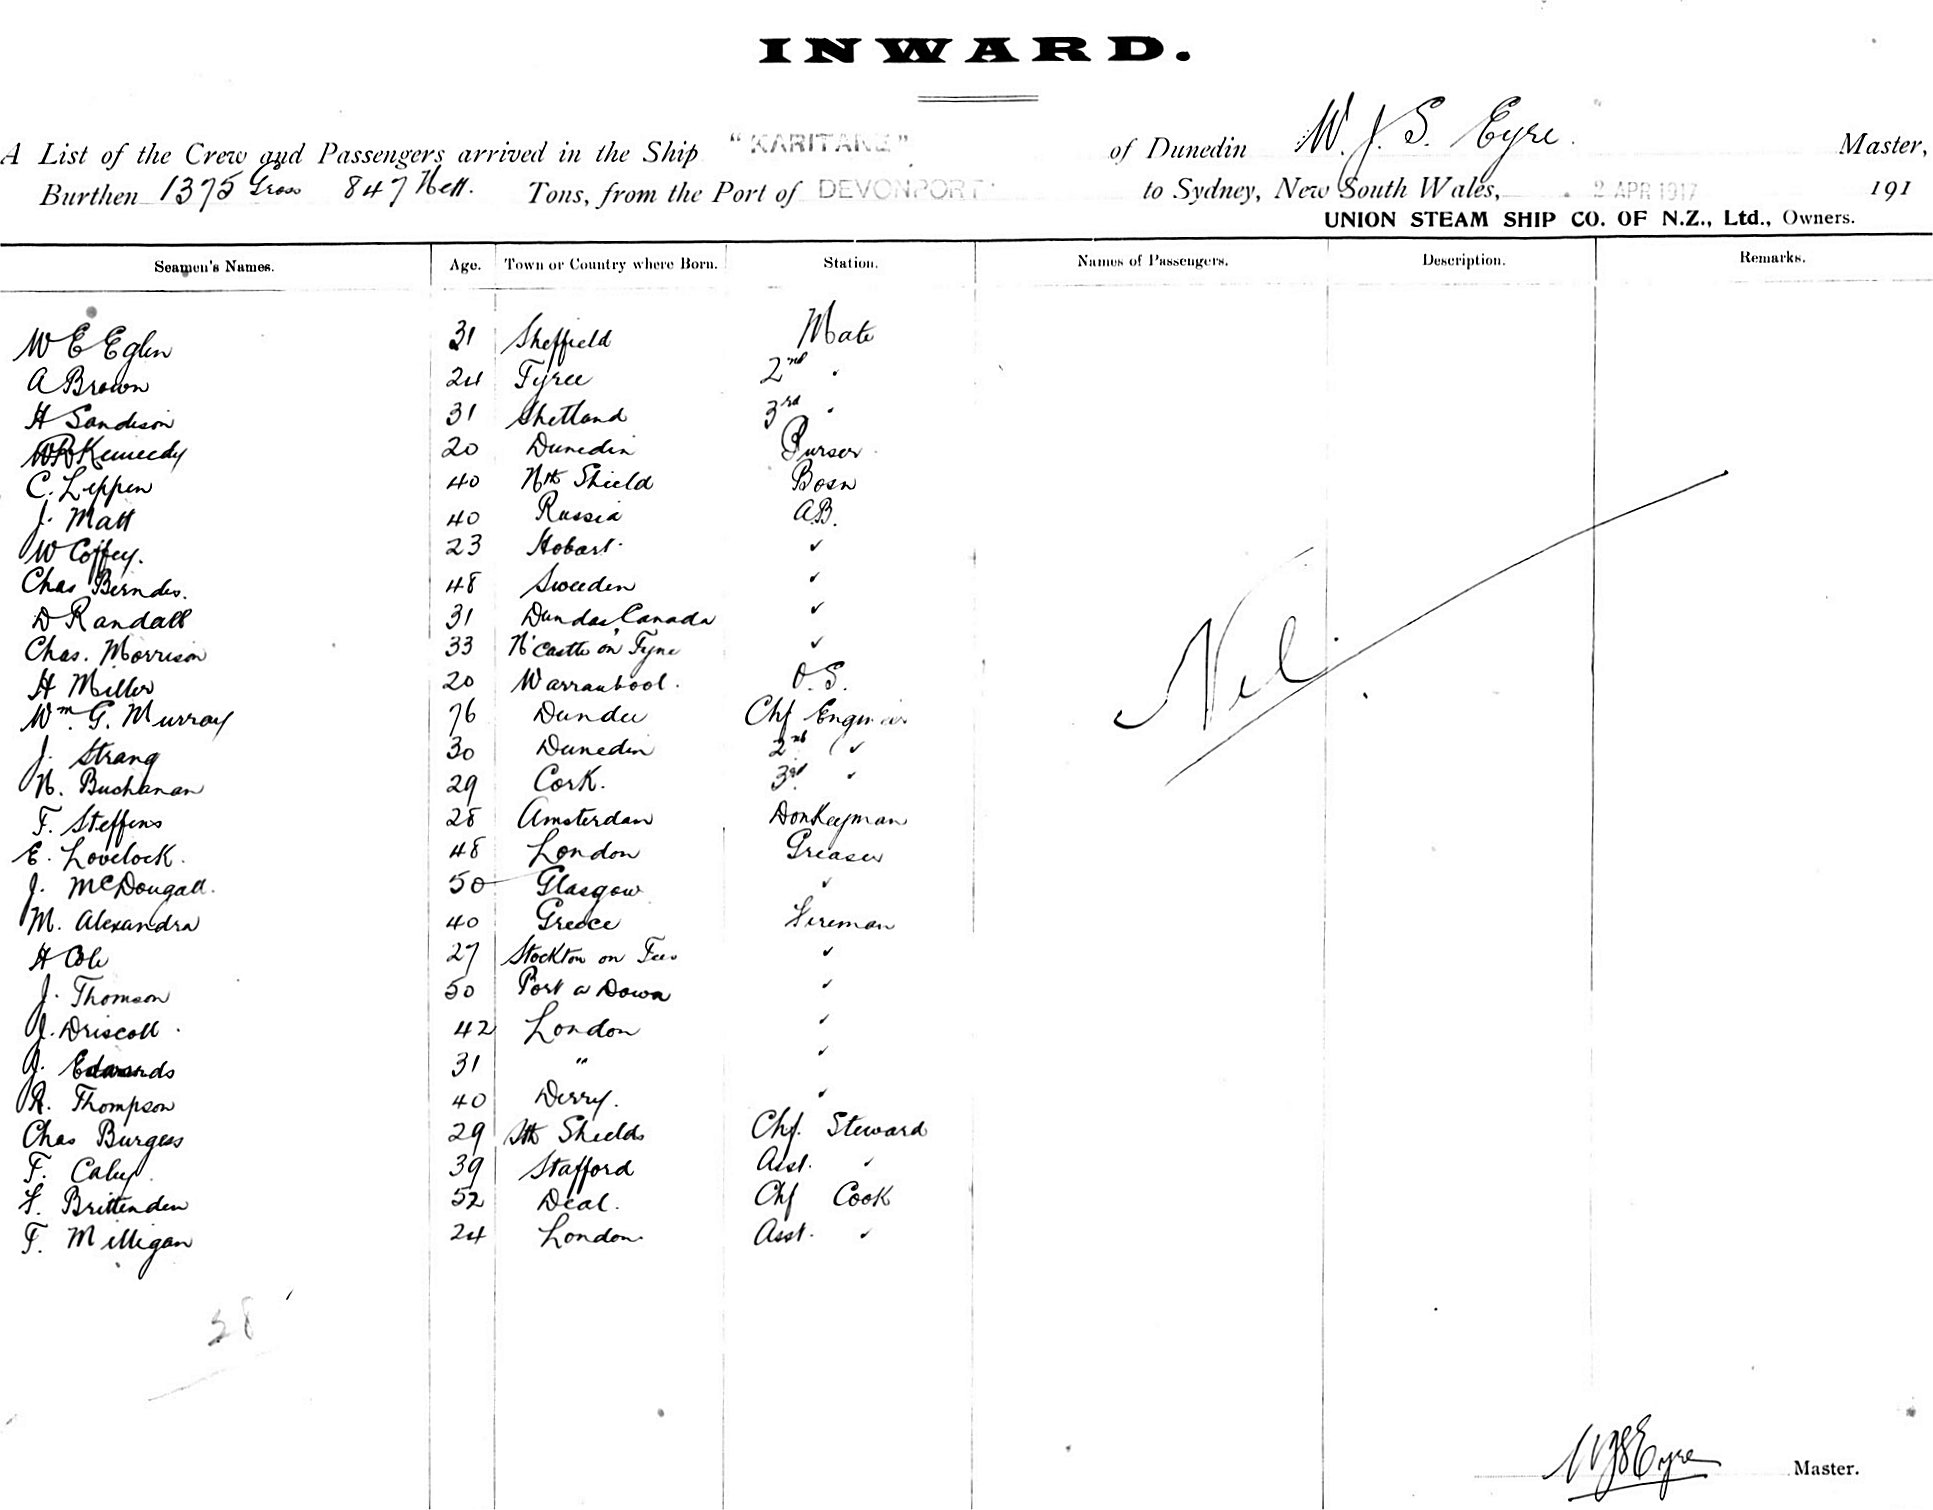 INWARD.
A List of the Crew and Passengers arrived in the Ship "KARITANE" of Dunedin W. J. S. Eyre. Master,
Burthen 1375 Gross 847 Nett. Tons, from the Port of DEVONPORT to Sydney, New South Wales, 2 APR 1917 191
UNION STEAM SHIP CO. OF N.Z., Ltd., Owners.
Seamen's Names. Age. Town or Country where Born. Station. Names of Passengers. Description. Remarks.
W E Eglen 31 Sheffield Mate
A Brown 24 Tyree 2nd "
H Sandison 31 Shetland 3rd "
Kennedy 20 Dunedin Purser
C. Leppen 40 Nth Shield Bosn
J. Matt 40 Russia A.B.
W Coffey. 23 Hobart. ✓
Chas Berndes. 48 Sweeden ✓
D Randall 31 Dundas, Canada ✓
Chas. Morrison 33 N'castle on Tyne ✓
H Miller 20 Warranbool. O.S.
Wm G. Murray 76 Dundee Chf Engineer
J. Strang 30 Dunedin 2nd ✓
N. Buchanan 29 Cork. 3rd ✓
F. Steffens 28 Amsterdam Donkeyman
E. Lovelock. 48 London Greaser
J. McDougall. 50 Glasgow ✓
M. Alexandra 40 Greece Fireman
H Cole 27 Stockton on Tees ✓
J. Thomson 50 Port a Down ✓
J. Driscoll 42 London ✓
J. Edwards 31 " ✓
R. Thompson 40 Derry. ✓
Chas Burgess 29 Sth Shields Chf. Steward
F. Caley 39 Stafford Asst. ✓
F. Brittenden 52 Deal. Chf Cook
F. Milligan 24 London. Asst. ✓
Nil.
28
WJSEyre Master.